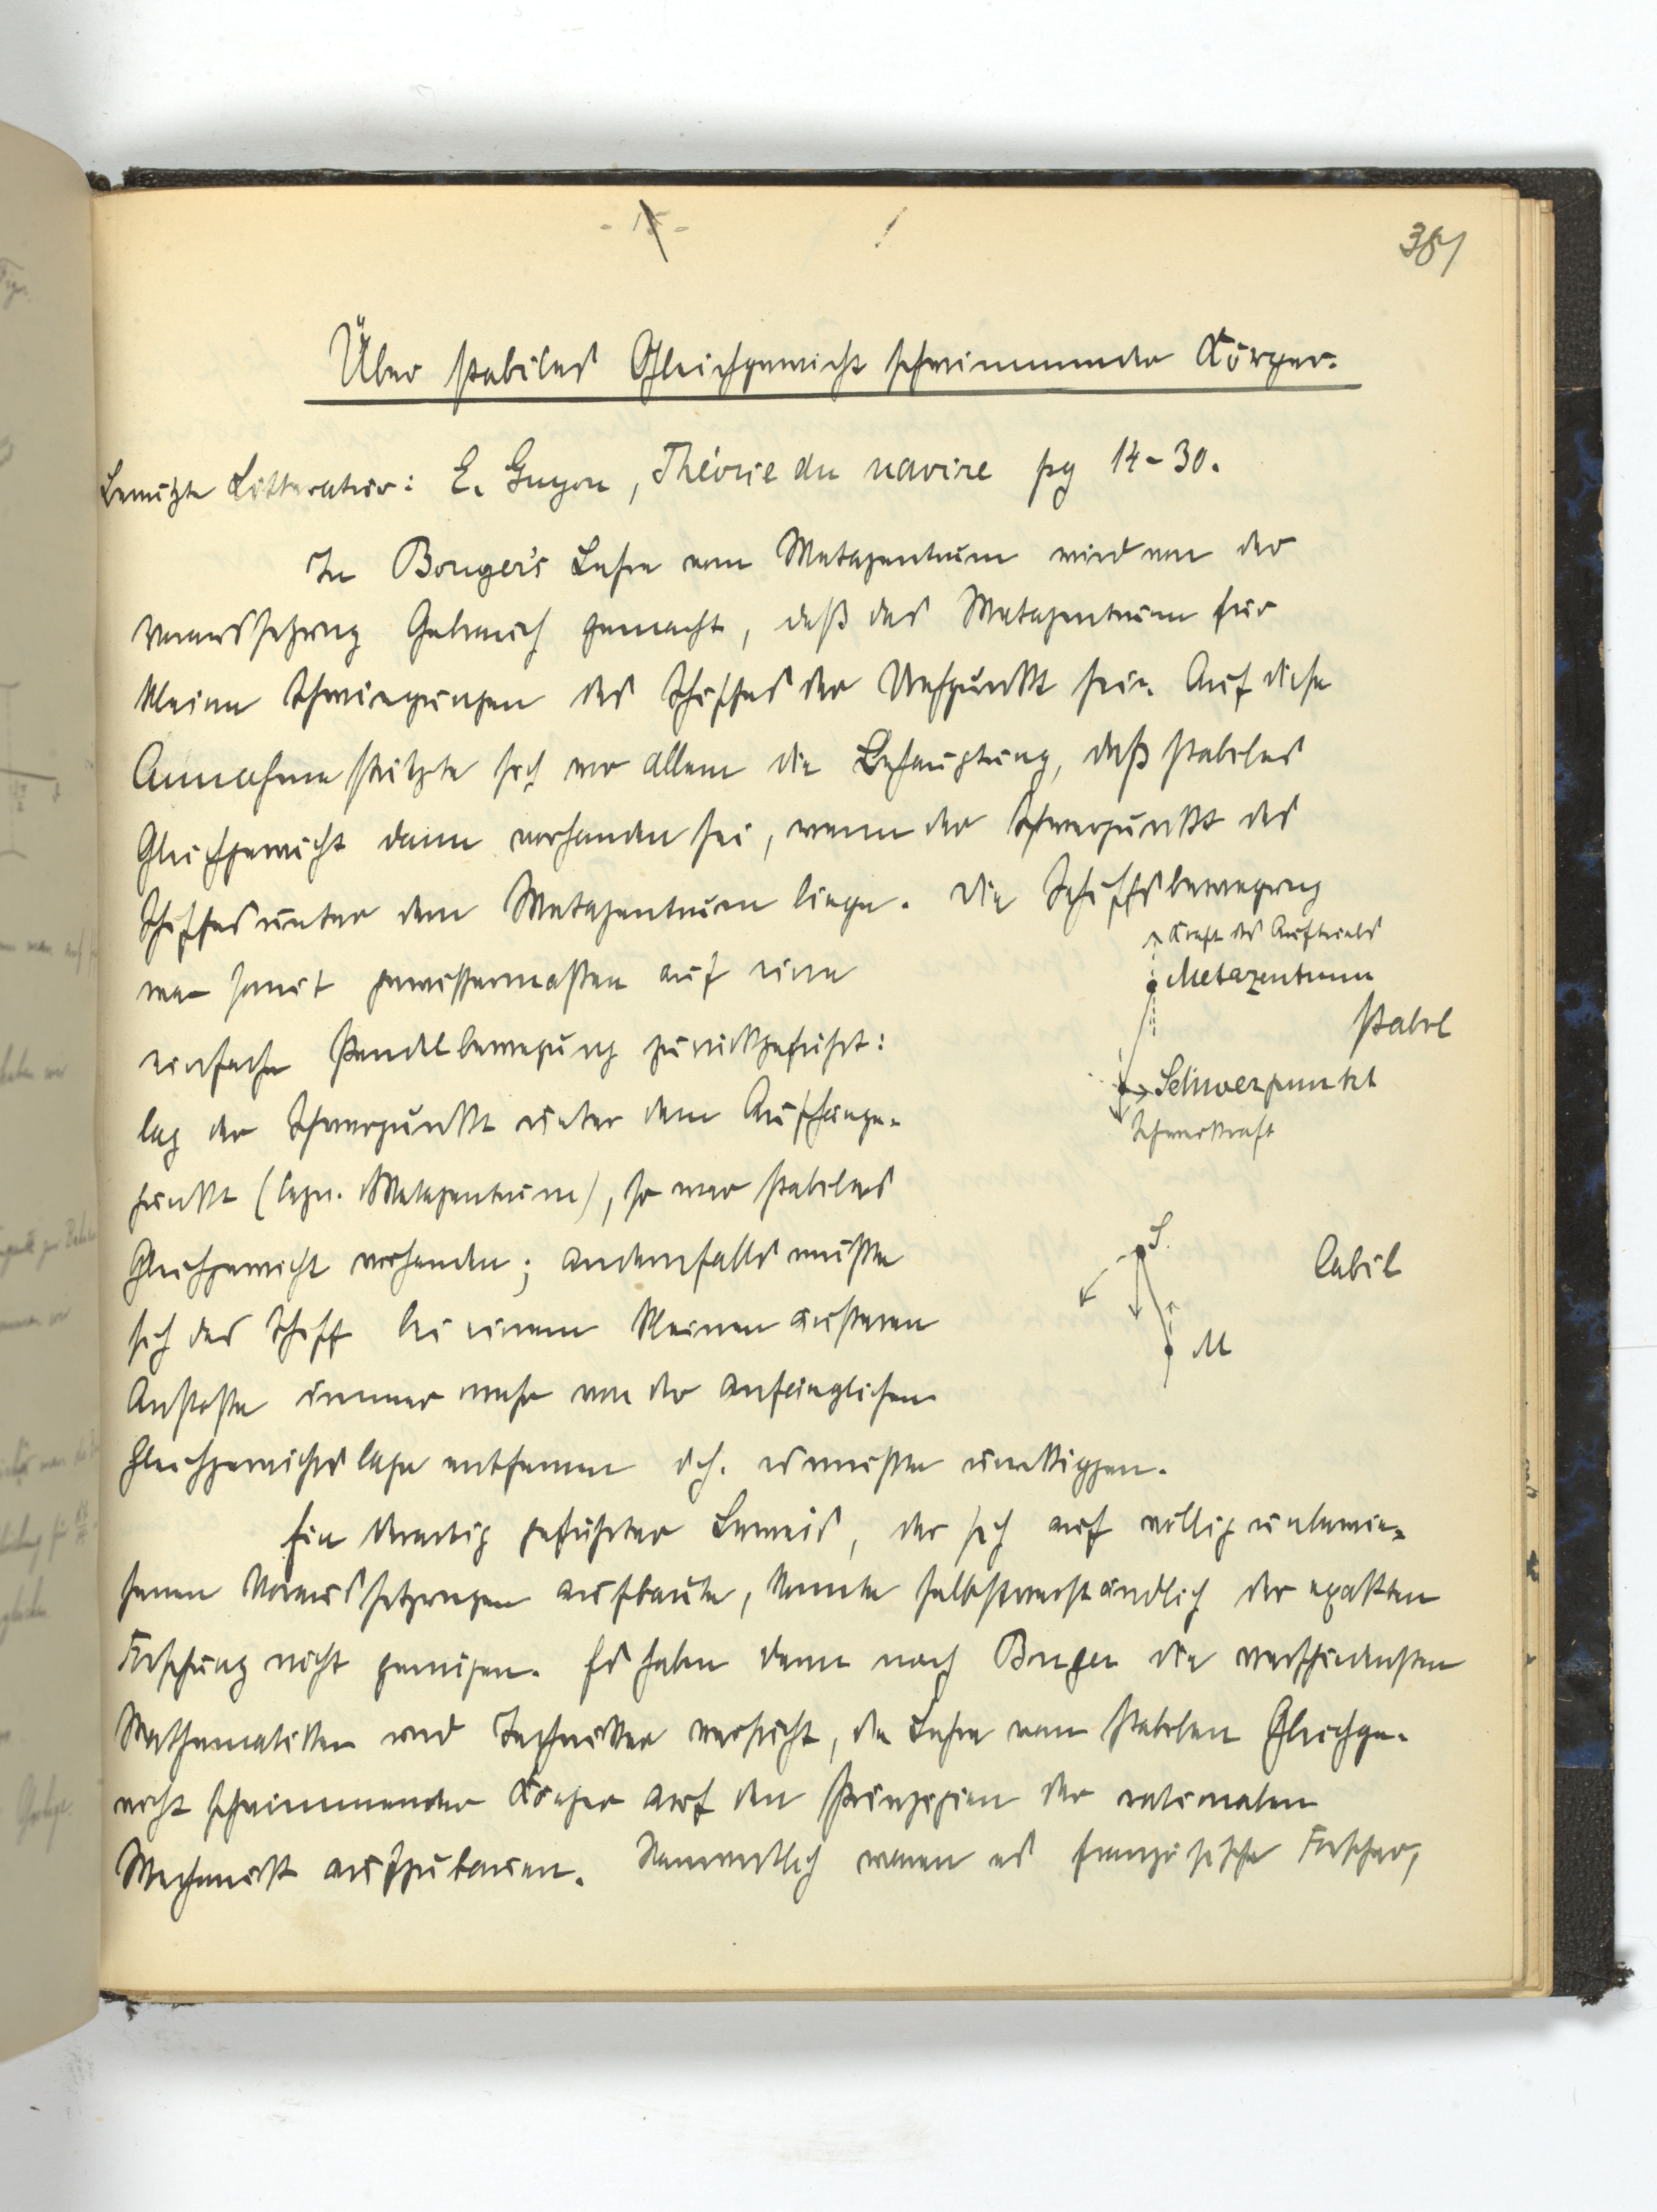 - 15 -
381
Über stabiles Gleichgewicht schwimmender Körper.
Benutzte Litteratur: E. Guyou, Théorie du navire pg 14-30.
In Bouger's Lehre vom Metazentrum wird von der
Voraussetzung Gebrauch gemacht, daß das Metazentrum für
kleine Schwingungen des Schiffes der Drehpunkt sei. Auf diese
Annahme stützte sich vor allem die Behauptung, daß stabiles
Gleichgewicht dann vorhanden sei, wenn der Schwerpunkt des
Schiffes unter dem Metazentrum liege. Die Schiffsbewegung
war somit gewissermassen auf eine
einfache Pendelbewegung zurückgeführt:
lag der Schwerpunkt unter dem Aufhänge-
punkt (bezw. Metazentrum), so war stabiles
Gleichgewicht vorhanden; andernfalls musste
sich das Schiff bei einem kleinen äusseren
Anstosse immer mehr von der anfänglichen
Gleichgewichtslage entfernen d.h. es musste umkippen.
Kraft des Auftriebs
Metazentrum
stabil
Schwerpunkt
Schwerkraft
S.
labil
M
Ein derartig geführter Beweis, der sich auf völlig unbewie-
senen Voraussetzungen aufbaute, konnte selbstverständlich der exakten
Forschung nicht genügen. Es haben denn nach Bouger die verschiedensten
Mathematiker und Techniker versucht, die Lehre vom stabilen Gleichge-
wicht schwimmender Körper auf den Prinzipien der rationalen
Mechanik aufzubauen. Namentlich waren es französische Forscher,